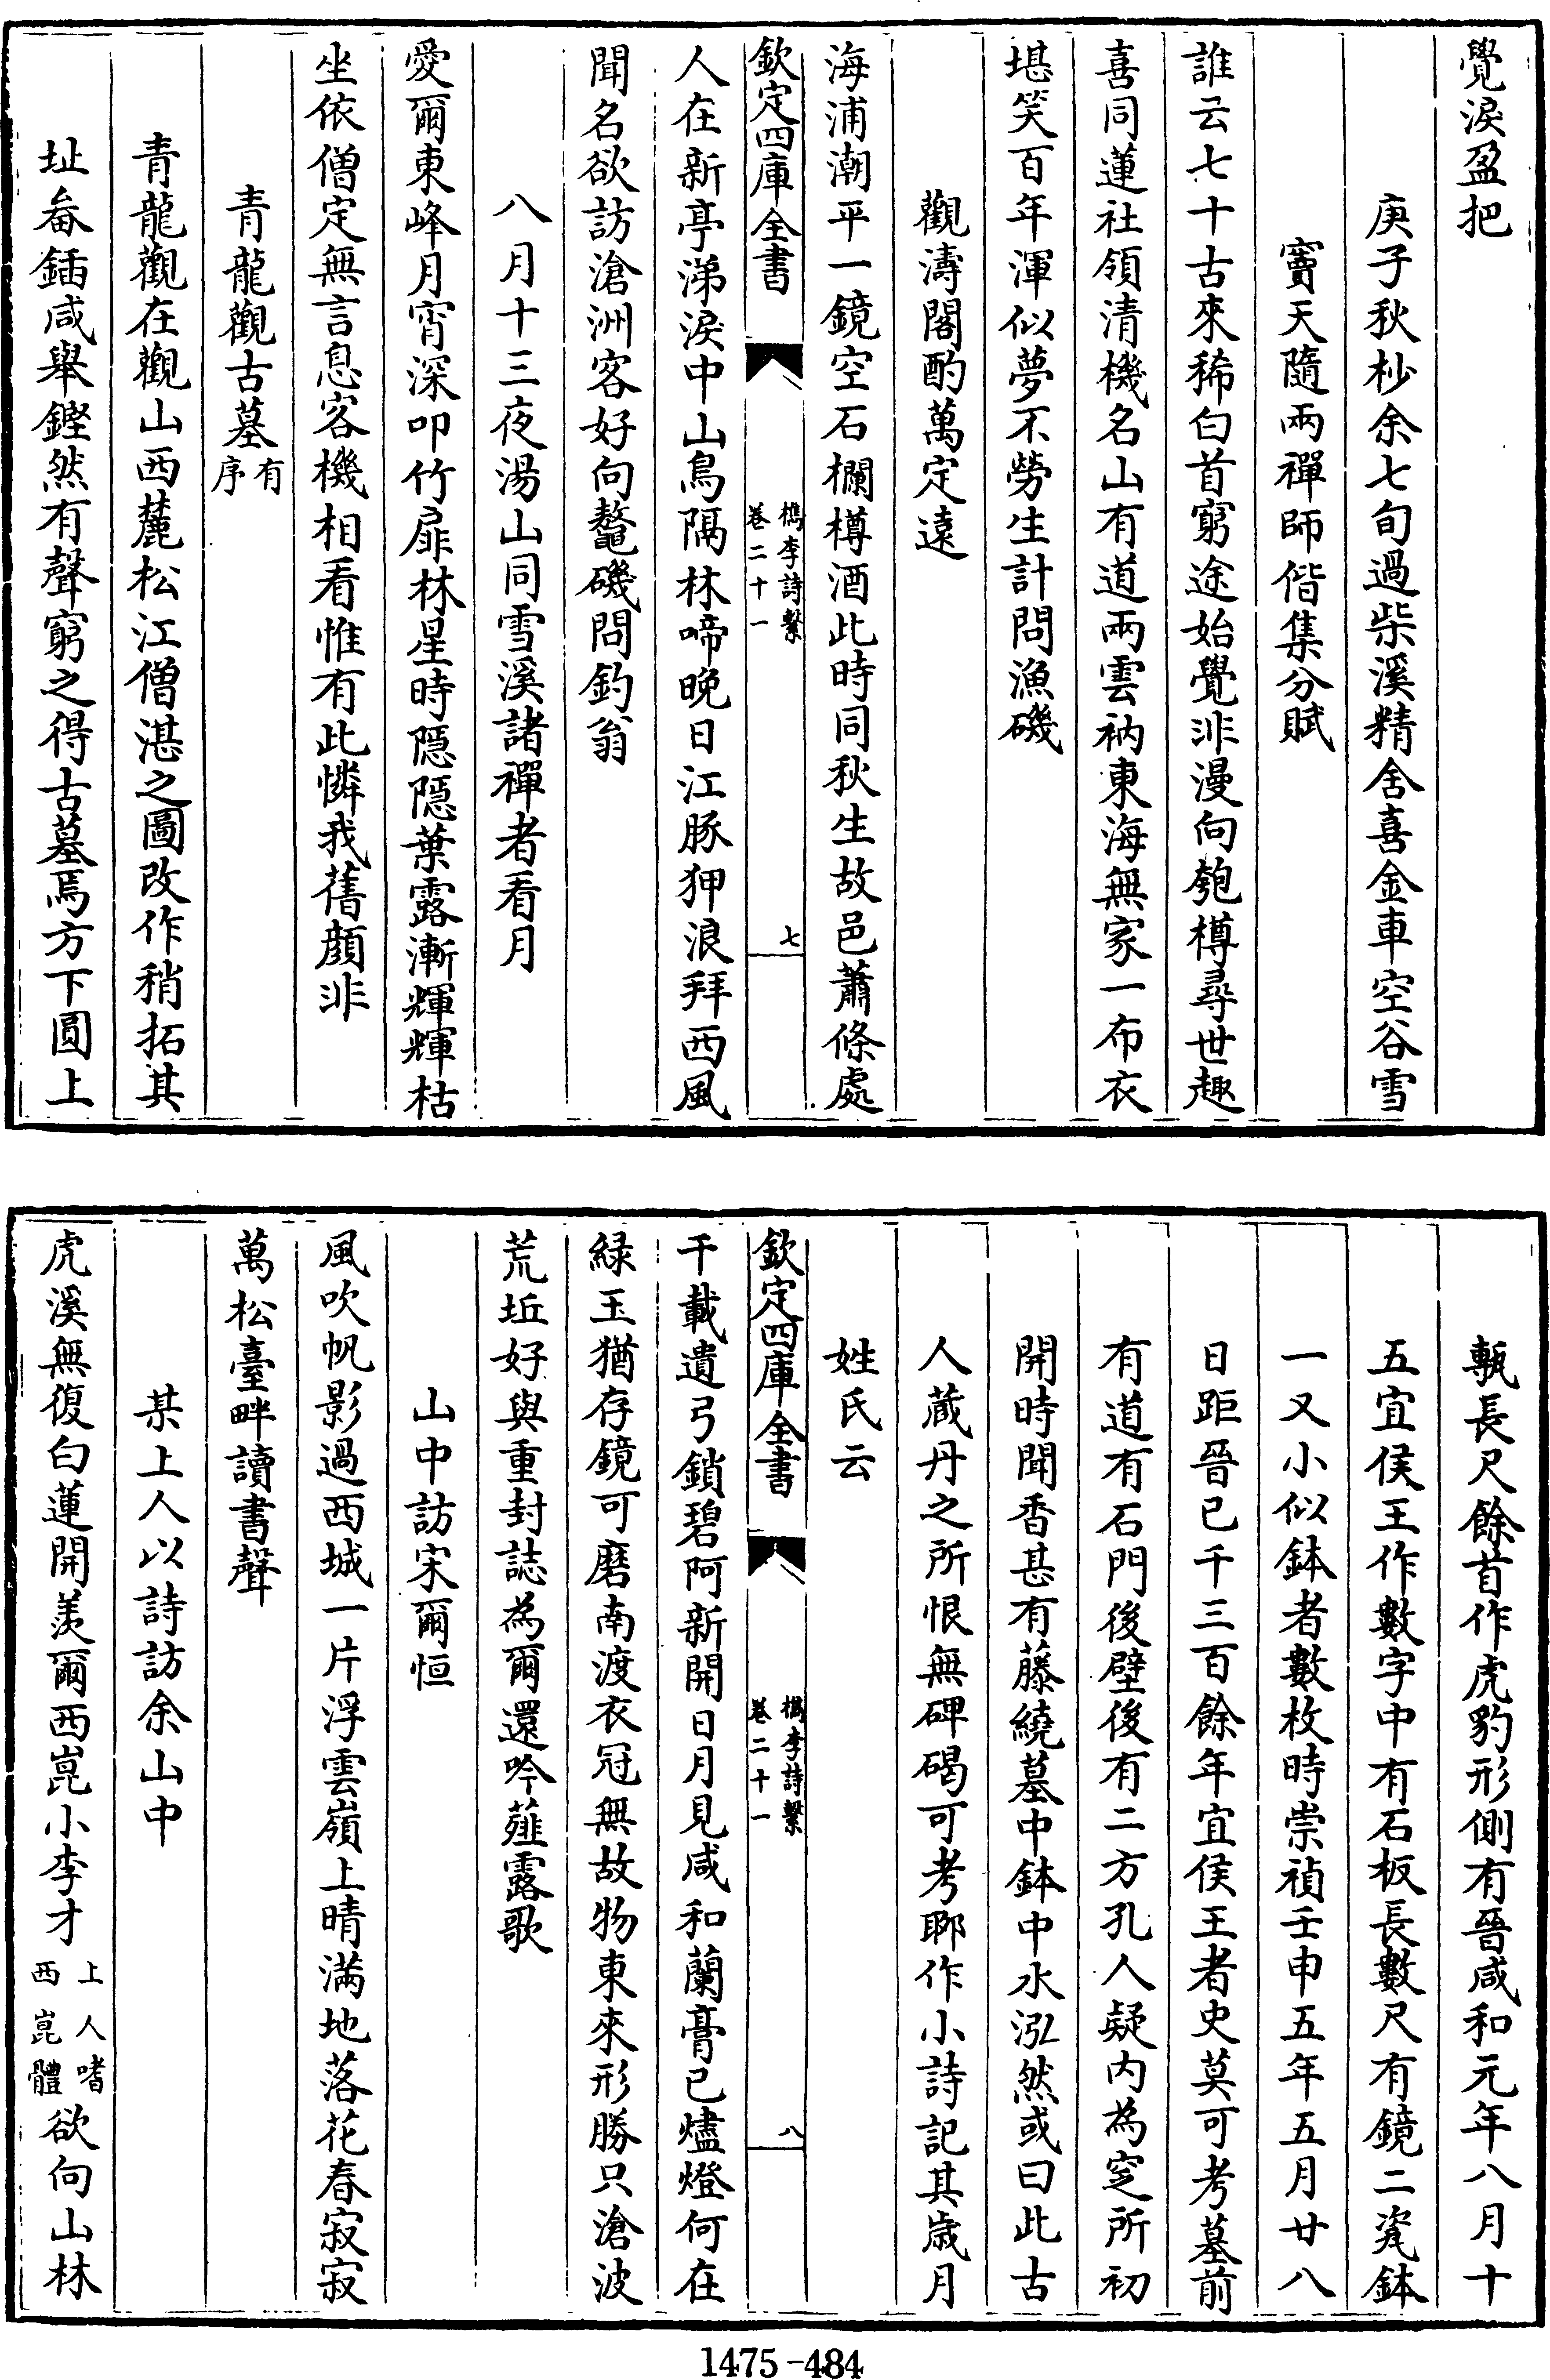 覺淚盈把
庚子秋杪余七旬過柴溪精舍喜金車空谷雪
竇天隨兩禪師偕集分賦
誰云七十古來稀白首窮途始覺非漫向匏樽尋世趣
喜同蓮社領清機名山有道兩雲衲東海無家一布衣
堪笑百年渾似夢不勞生計問漁磯
觀濤閣酌萬定遠
海浦潮平一鏡空石欄樽酒此時同秋生故邑蕭條處
欽定四庫全書
檇李詩繫
卷二十一
七
人在新亭涕淚中山鳥隔林啼晚日江豚狎浪拜西風
聞名欲訪滄洲客好向鼇磯問釣翁
八月十三夜湯山同雪溪諸禪者看月
愛爾東峰月宵深叩竹扉林星時隱隱葉露漸輝輝枯
坐依僧定無言息客機相看惟有此憐我舊顏非
青龍觀古墓有序
青龍觀在觀山西麓松江僧湛之圖改作稍拓其
址畚鍤咸舉鏗然有聲窮之得古墓焉方下圓上
甎長尺餘首作虎豹形側有晉咸和元年八月十
五宜侯王作數字中有石板長數尺有鏡二瓷鉢
一又小似鉢者數枚時崇禎壬申五年五月廿八
日距晉已千三百餘年宜侯王者史莫可考墓前
有道有石門後壁後有二方孔人疑内為窆所初
開時聞香甚有藤繞墓中鉢中水泓然或曰此古
人蔵丹之所恨無碑碣可考聊作小詩記其歲月
姓氏云
欽定四庫全書
檇李詩繫
卷二十一
八
千載遺弓鎖碧阿新開日月見咸和蘭膏已燼燈何在
緑玉猶存鏡可磨南渡衣冠無故物東來形勝只滄波
荒坵好與重封誌為爾還吟薤露歌
山中訪宋爾恒
風吹帆影過西城一片浮雲嶺上晴滿地落花春寂寂
萬松臺畔讀書聲
某上人以詩訪余山中
虎溪無復白蓮開羨爾西崑小李才上人嗜西崑體欲向山林
1475-484